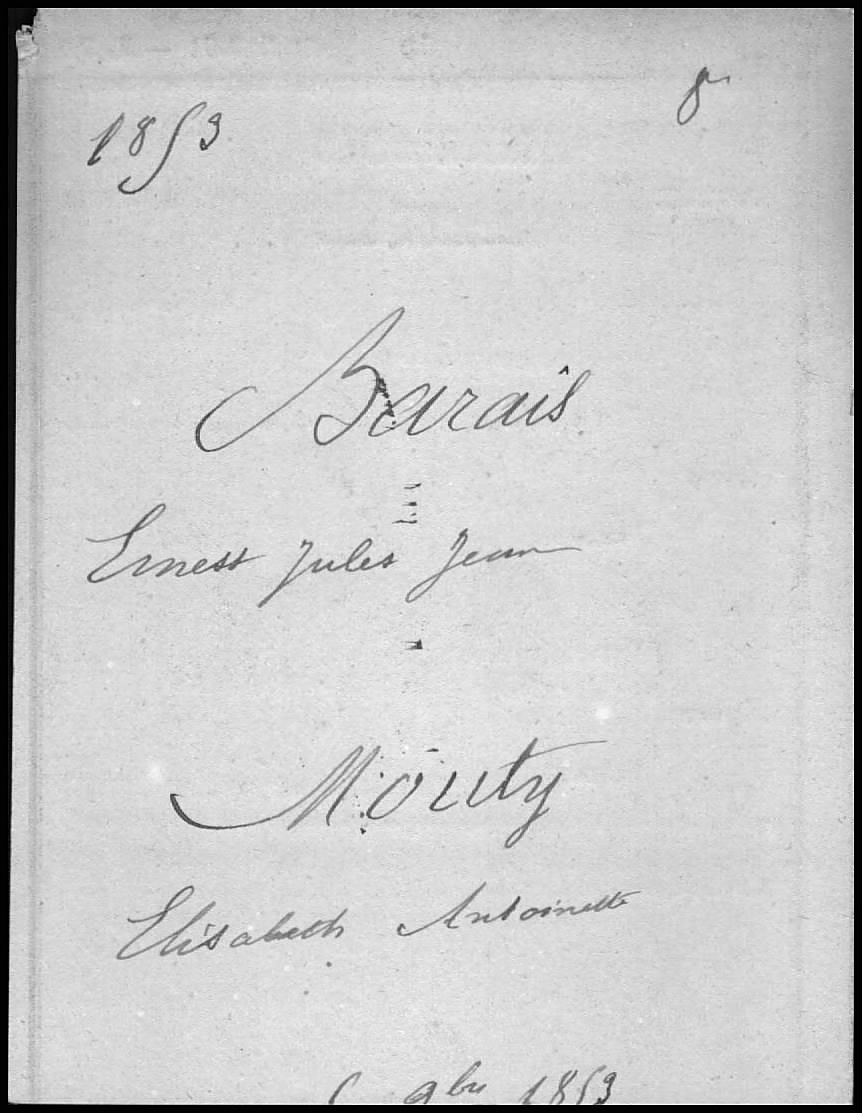 1853
8
Barais
Ernest Jules Jean
Mouty
Elisabeth Antoinette
9bre 1853